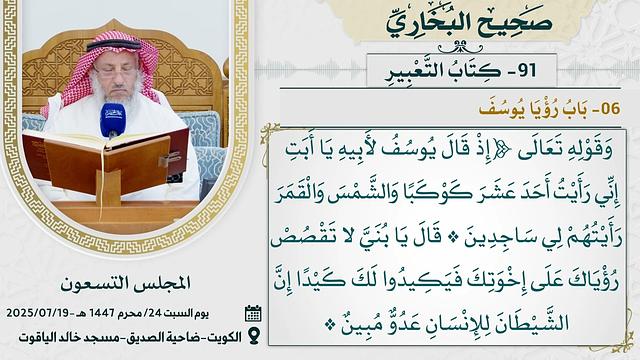 صَحِيحُ البُخَارِيِّ
91- كِتَابُ التَّعْبِيرِ
06- بَابُ رُؤْيَا يُوسُفَ
وَقَوْلِهِ تَعَالَى ﴿إِذْ قَالَ يُوسُفُ لِأَبِيهِ يَا أَبَتِ
إِنِّي رَأَيْتُ أَحَدَ عَشَرَ كَوْكَبًا وَالشَّمْسَ وَالْقَمَرَ
رَأَيْتُهُمْ لِي سَاجِدِينَ ❖ قَالَ يَا بُنَيَّ لَا تَقْصُصْ
رُؤْيَاكَ عَلَى إِخْوَتِكَ فَيَكِيدُوا لَكَ كَيْدًا إِنَّ
الشَّيْطَانَ لِلْإِنْسَانِ عَدُوٌّ مُبِينٌ ❖
المجلس التسعون
يوم السبت 24/ محرم 1447 هـ -2025/07/19
الكويت-ضاحية الصديق-مسجد خالد الياقوت